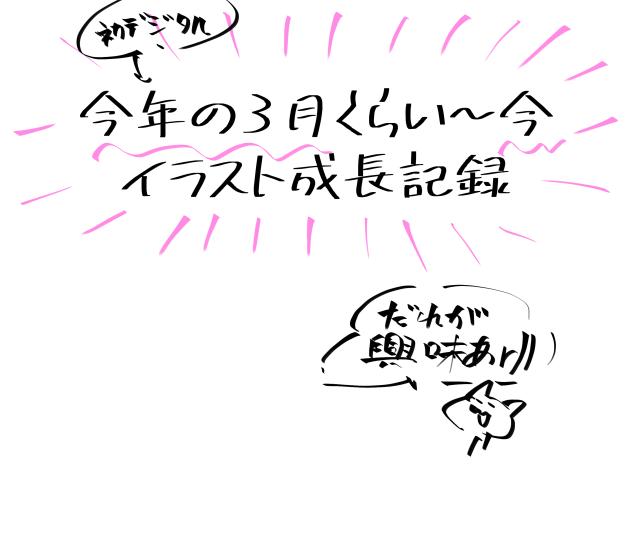 初デジタル
今年の3月くらい〜今
イラスト成長記録
だれが
興味あり